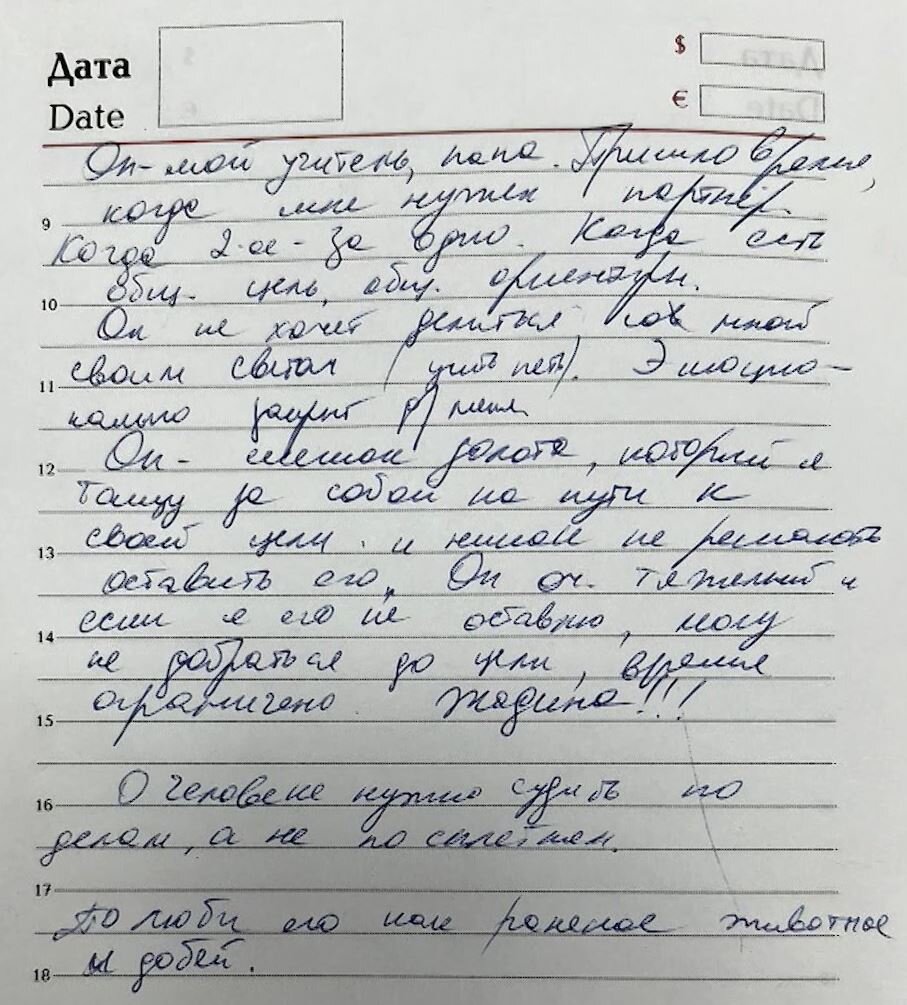 Дата
$
Date
€
Он - мой учитель, папа. Пришло время,
9 когда мне нужен партнёр.
Когда 2-ое - за одно. Когда есть
10 общ. цель, общ. ориентиры.
Он не хочет делиться со мной
11 своим светом (учить петь). Эмоцио-
нально закрыт от меня
12 Он - мешок золота, который я
тащу за собой на пути к
13 своей цели и никак не решаюсь
оставить его. Он оч. тяжелый и
14 если я его не оставлю, могу
не добраться до цели, время
15 ограничено. Жадина!!!
16 О человеке нужно судить по
делам, а не по сплетням.
17
Полюби его как раненое животное
18 и добей.